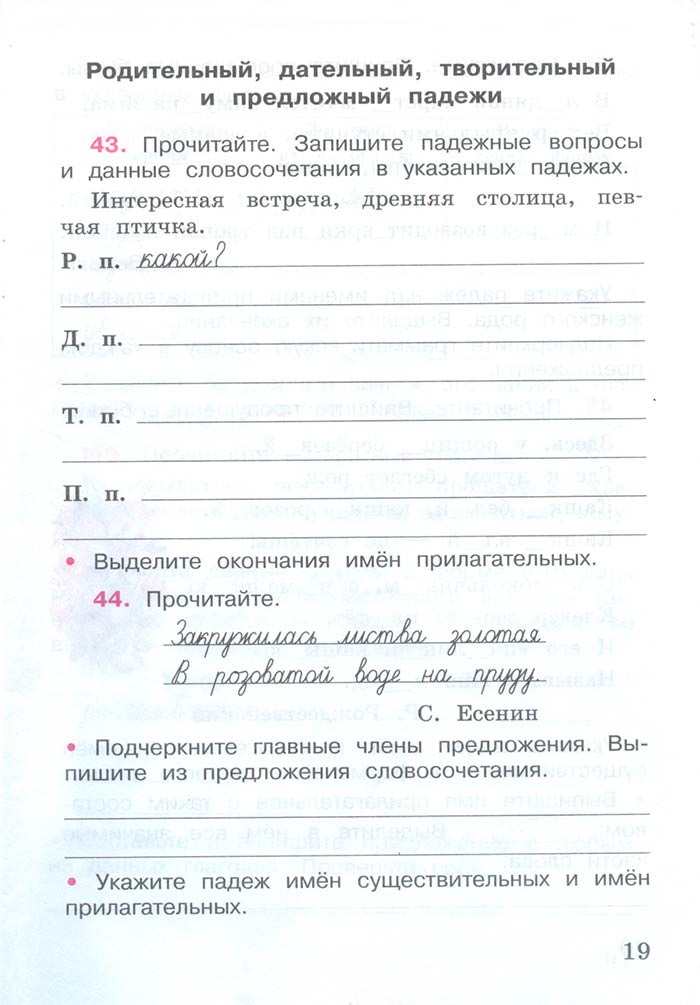 Родительный, дательный, творительный
и предложный падежи
43. Прочитайте. Запишите падежные вопросы
и данные словосочетания в указанных падежах.
Интересная встреча, древняя столица, пев-
чая птичка.
Р. п. какой?
Д. п.
Т. п.
П. п.
• Выделите окончания имён прилагательных.
44. Прочитайте.
Закружилась листва золотая
В розоватой воде на пруду
С. Есенин
• Подчеркните главные члены предложения. Вы-
пишите из предложения словосочетания.
• Укажите падеж имён существительных и имён
прилагательных.
19